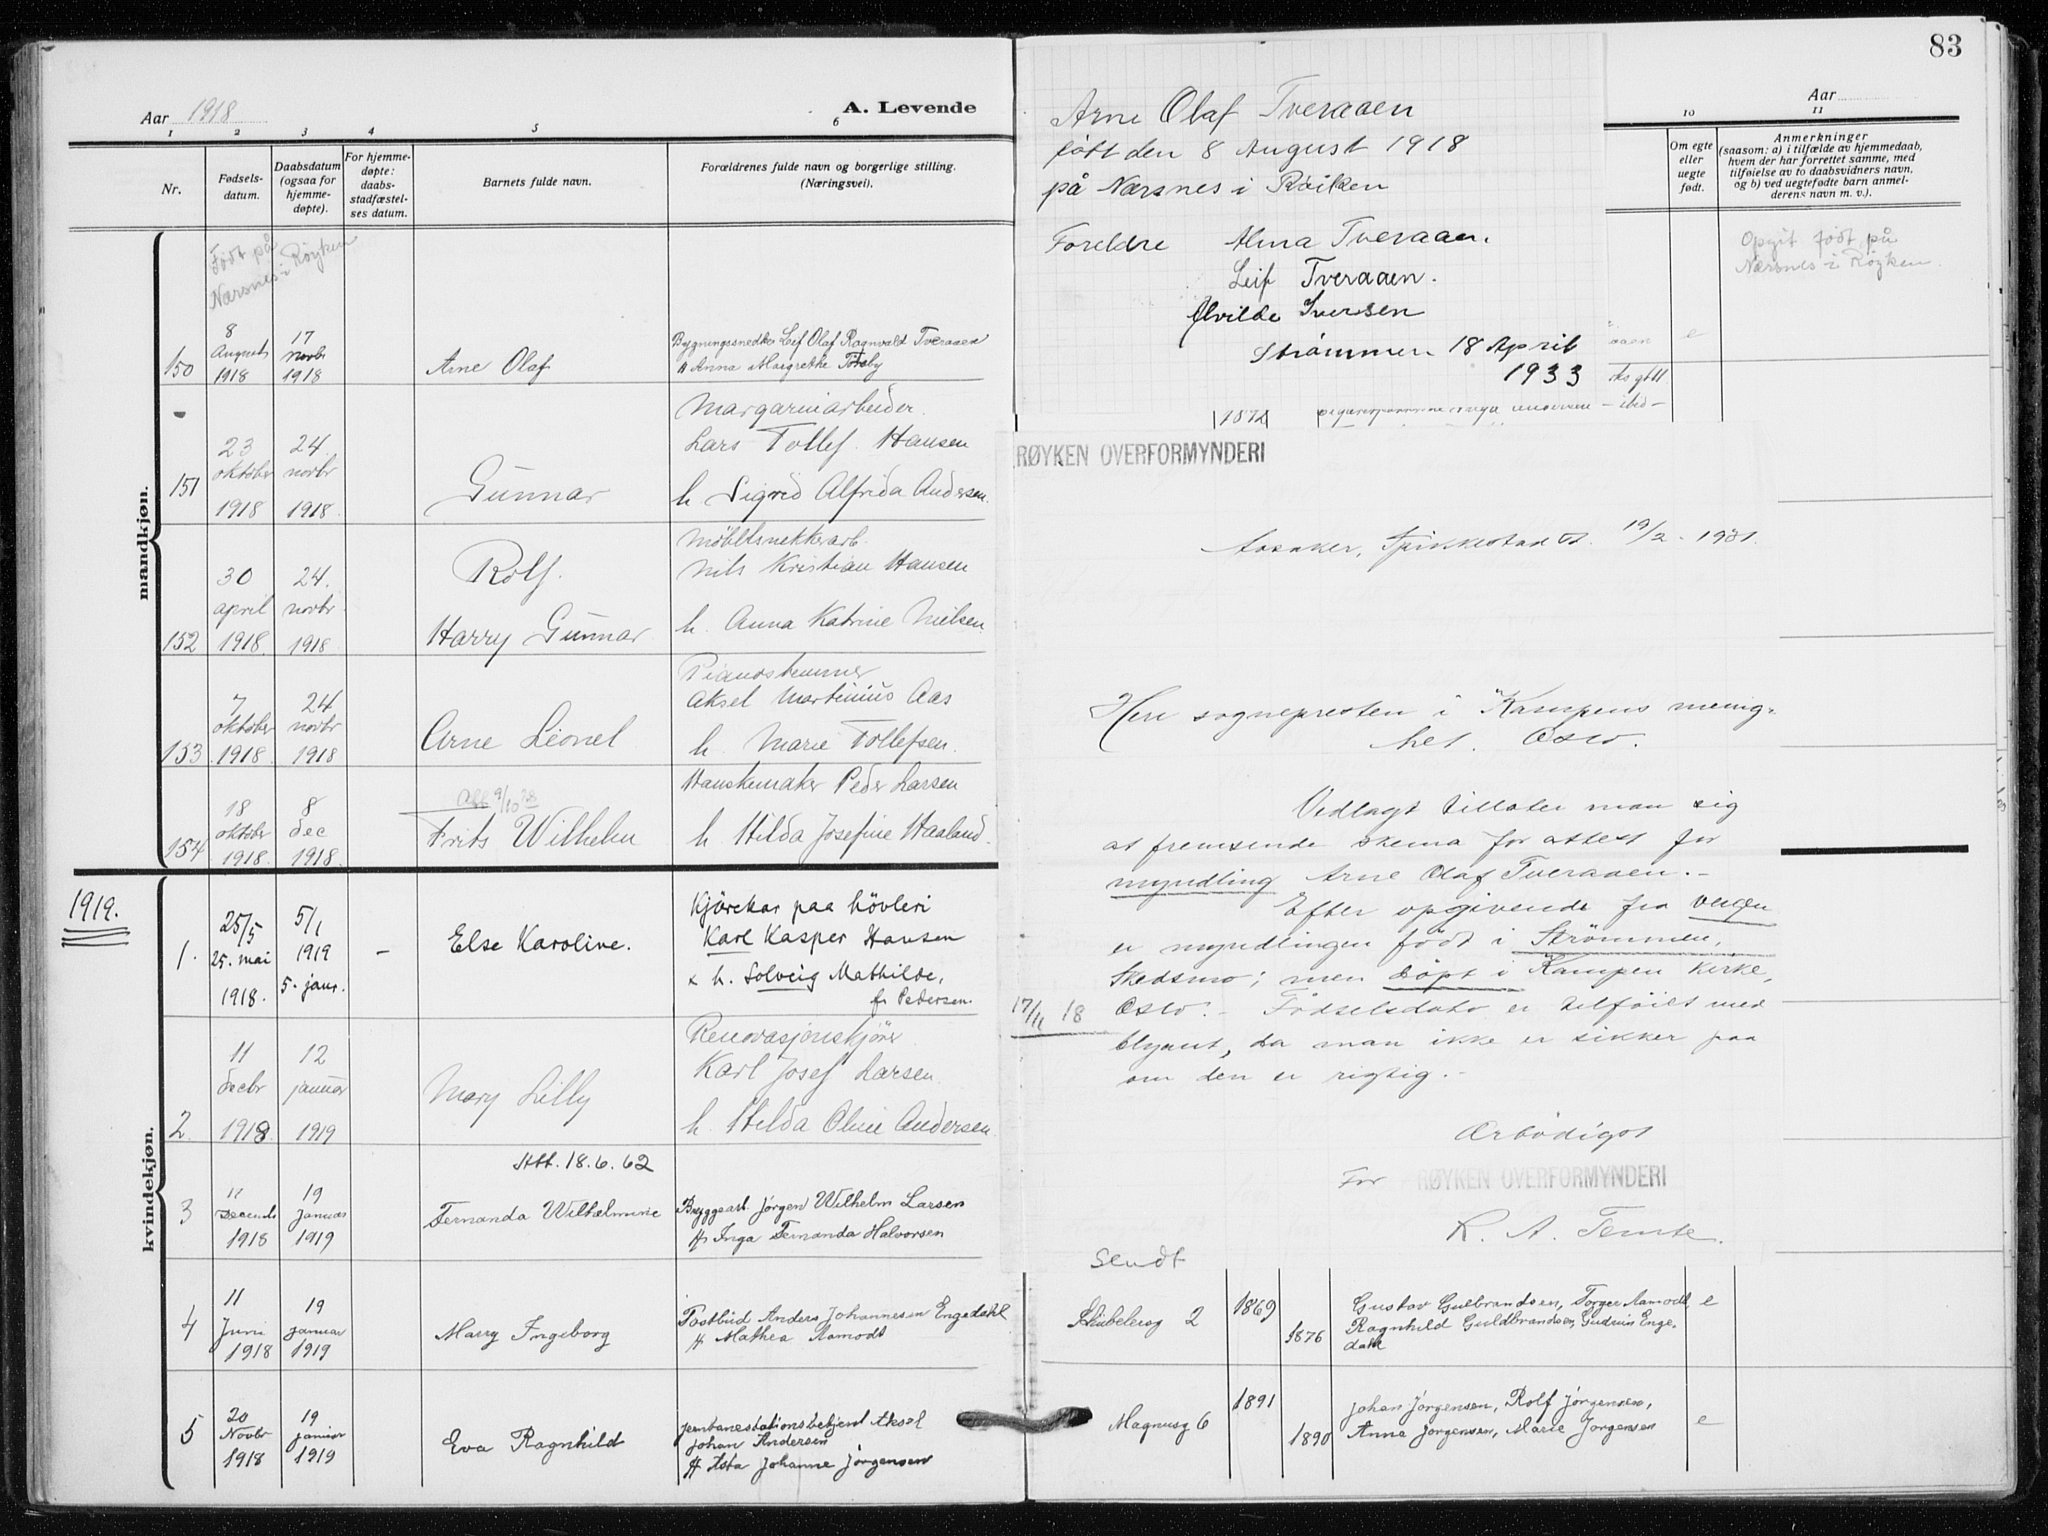 83
Aar 1918
A. Levende
Aar
1 2 3 4 5 6
10 11
Nr.
Fødsels-
datum.
Daabsdatum
(ogsaa for
hjemme-
døpte).
For hjemme-
døpte:
daabs-
stadfæstel-
ses datum.
Barnets fulde navn.
Forældrenes fulde navn og borgerlige stilling.
(Næringsvei).
Om egte
eller
uegte
født.
Anmerkninger
(saasom: a) i tilfælde av hjemmedaab,
hvem der har forrettet samme, med
tilføielse av to daabsvidners navn,
og b) ved uegtefødte barn anmel-
derens navn m. v.).
mandkjøn.
Født på
Nærsnes i Røyken
150
8
August
1918
17
novbr
1918
Arne Olaf
Bygningssnedker Leif Olaf Ragnvald Tveraaen
H Anna Margrethe
151
23
oktober
1918
24
novbr
1918
Gunnar
Margarinarbeider
Lars Tollef Hansen
h Sigrid Alfrida Andersen.
152
30
april
1918
24.
novbr
1918
Rolf
Harry Gunnar
Møbelsnekkerarb.
Nils Kristian Hansen
h. Anna Katrine Nielsen
153
7
oktober
1918
24
novbr
1918
Arne Leonel
Pianostemmer
Aksel Martinius Aas
h Marie Tollefsen.
154
18
oktober
1918
8
dec
1918
Att 9/10 28
Frits Wilhelm
Hanskemaker Peder Larsen
h Hilda Josefine Haaland.
1919.
kvindekjøn.
1.
25/5
25. mai
1918.
5/1
1919
5. jan.
-
Else Karoline.
Kjørekar paa høvleri
Karl Kasper Hansen
x h. Solveig Mathilde,
f. Pedersen.
2
11
decbr
1918
12
januar
1919
Mary Lilly
Renovasjonskjører
Karl Josef Larsen
h. Hilda Oline Andersen
Att. 18.6.62
3
Decemb
1918
19
Januar
1919
Fernanda Wilhelmine
Bryggearb. Jørgen Wilhelm Larsen
H Inga Fernanda Halvorsen
4
11
Juni
1918
19
Januar
1919
Marry Ingeborg
Postbud Anders Johannesen Engedahl
H Mathea Aamodt
5
20
Novbr
1918
19
Januar
1919
Eva Ragnhild
Jernbanestationsbetjent Aksel
Johan Andersen
H Asta Johanne Jørgensen
Arne Olaf Tveraaen
født den 8 August 1918
på Nærsnes i Røiken
Foreldre Alma Tveraaen.
Leif Tveraaen.
Alvilde Iversen
Strømmen 18 April
1933
Opgit født på
Nærsnes i Røyken
e
1872
- ibid -
RØYKEN OVERFORMYNDERI
Aasaker, Spikkestad st. 19/2 - 1931.
Herr sognepresten i Kampens menig-
het. Oslo.
Vedlagt tillater man sig
at fremsende skema for attest for
myndling Arne Olaf Tveraaen.-
Efter opgivende fra vergen
er myndlingen født i Strømmen,
Skedsmo; men døpt i Kampen kirke,
17/11 18
Oslo.- Fødselsdato er tilføiet med
blyant, da man ikke er sikker paa
om den er rigtig.-
Ærbødigst
For RØYKEN OVERFORMYNDERI
K. A. Temte.
Sendt
Stubelerog 2
1869
1876
Gustav Gulbrandsen, Torger Aamodt
Ragnhild Guldbrandsen, Gudrun Enge-
dahl
e
Magnusg 6
1891
1890
Johan Jørgensen, Rolf Jørgensen,
Anna Jørgensen, Marie Jørgensen
e